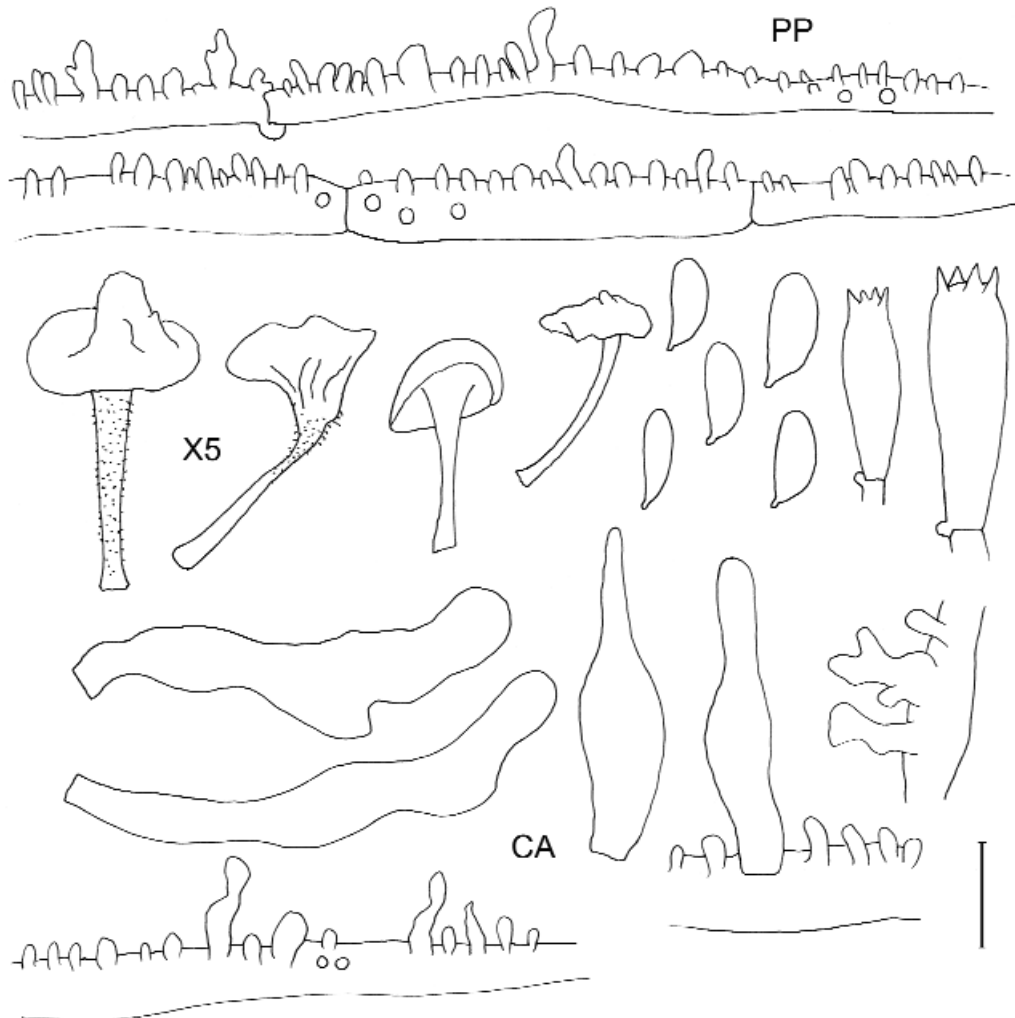 PP
X5
CA